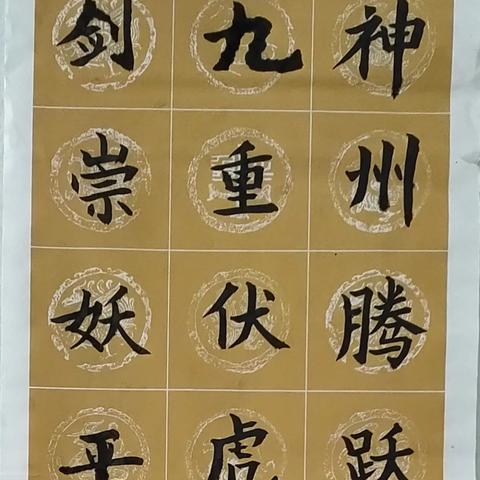 神州腾跃
九重伏虎
剑崇妖平